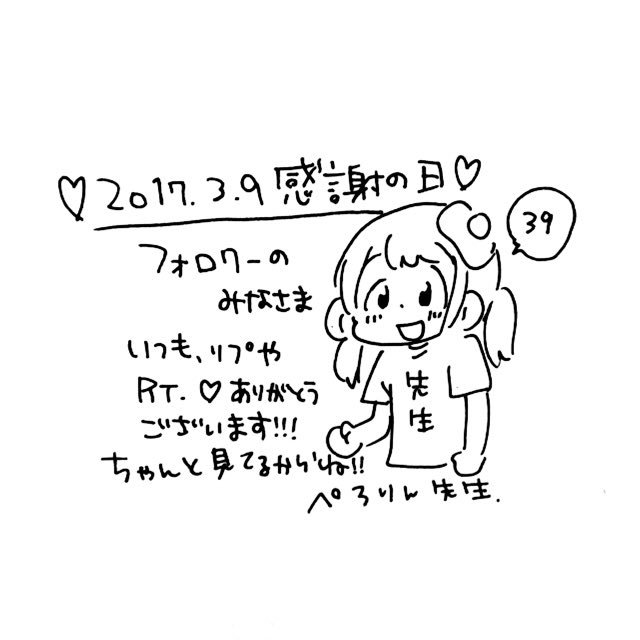 ♡2017.3.9 感謝の日♡
39
フォロワーの
みなさま
いつも、リプや
RT.♡ありがとう
ございます!!!
ちゃんと見てるからね!!
先生
ぺろりん先生.